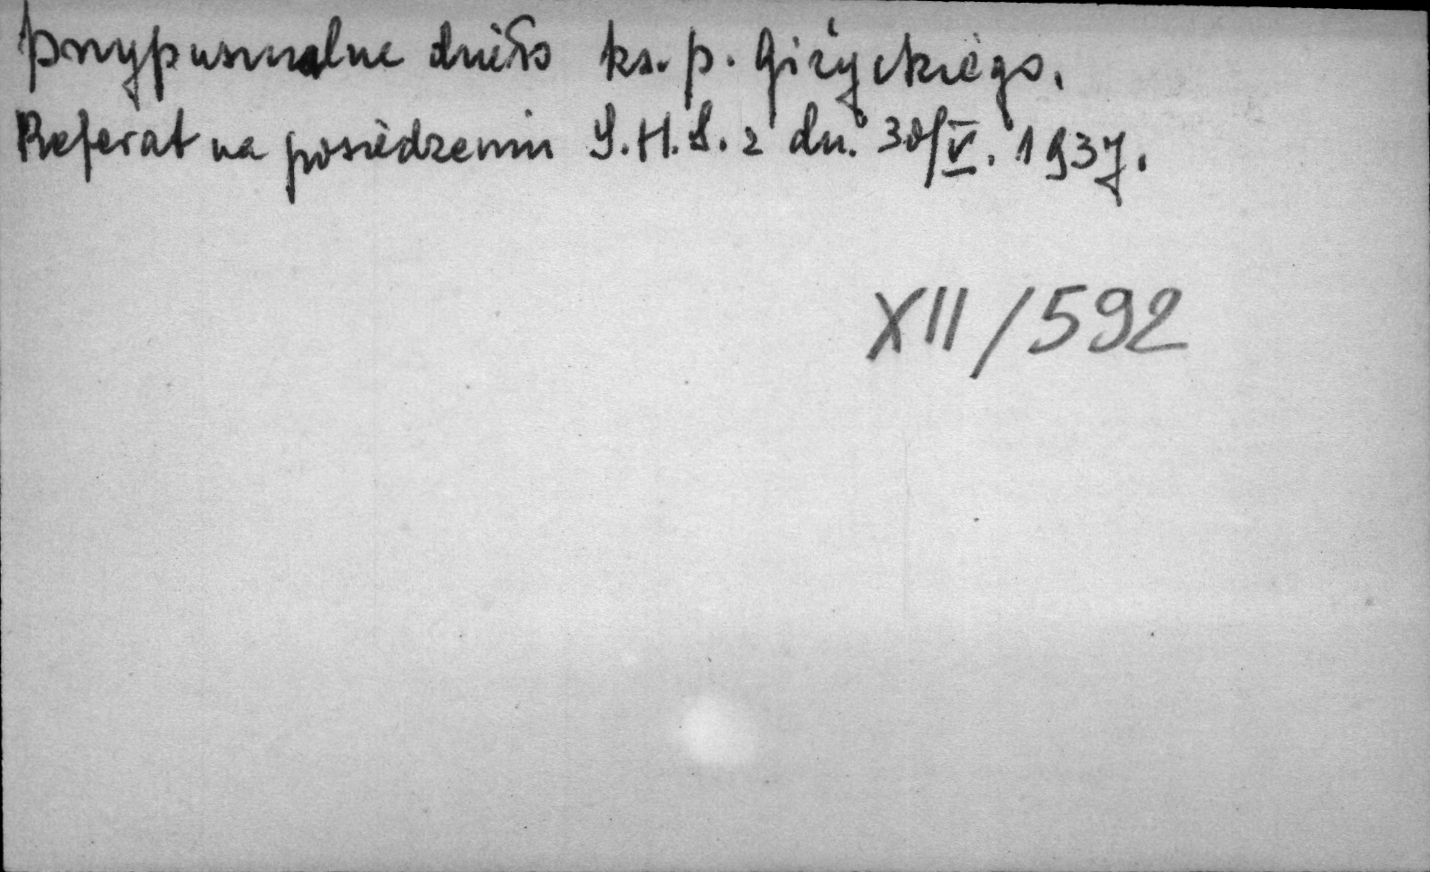 przypuszczalne dzieło ks. p. Giżyckiego.
Referat na posiedzeniu S.H.S. z dn. 30/V. 1937.
XII/592